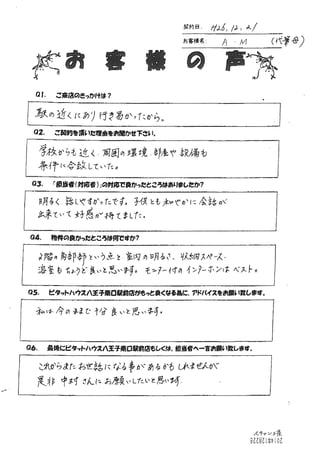 契約日: H25.12.21
お客様名: A.M (代筆母)
お客様の声
Q1. ご来店のきっかけは?
駅の近くにあり行き易かったから。
Q2. ご契約を頂いた理由をお聞かせ下さい。
学校からも近く、周囲の環境、部屋や設備も
条件に合致していた。
Q3. 「担当者(対応者)」の対応で良かったところはありましたか?
明るく、話しやすかったです。子供とも和やかに会話が
出来ていて好感が持てました。
Q4. 物件の良かったところは何ですか?
2階の角部部という点と室内の明るさ、収納スペース、
浴室もちょうど良いと思います。モニター付のインターホンはベスト。
Q5. ピタットハウス八王子南口駅前店がもっと良くなる為に、アドバイスをお願い致します。
私は今のままで十分良いと思います。
Q6. 最後にピタットハウス八王子南口駅前店もしくは、担当者へ一言お願い致します。
これからまたお世話になる事があるかもしれませんが
是非中村さんにお願いしたいと思います。
スキャン済